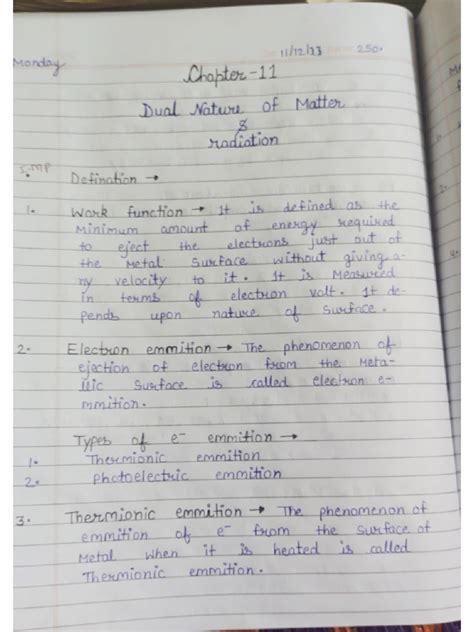 Monday
11/12/23
250.
Chapter-11
Dual Nature of Matter
&
radiation
Imp
Defination →
1. Work function → It is defined as the
Minimum amount of energy required
to eject the electrons just out of
the Metal Surface without giving a-
ny velocity to it. It is Measured
in terms of electron volt. It de-
pends upon nature of Surface.
2. Electron emmition → The phenomenon of
ejection of electron from the Meta-
llic Surface is called electron e-
mmition.
Types of e⁻ emmition →
1. Thermionic emmition
2. Photoelectric emmition
3. Thermionic emmition → The phenomenon of
emmition of e⁻ from the Surface of
Metal When it is heated is called
Thermionic emmition.